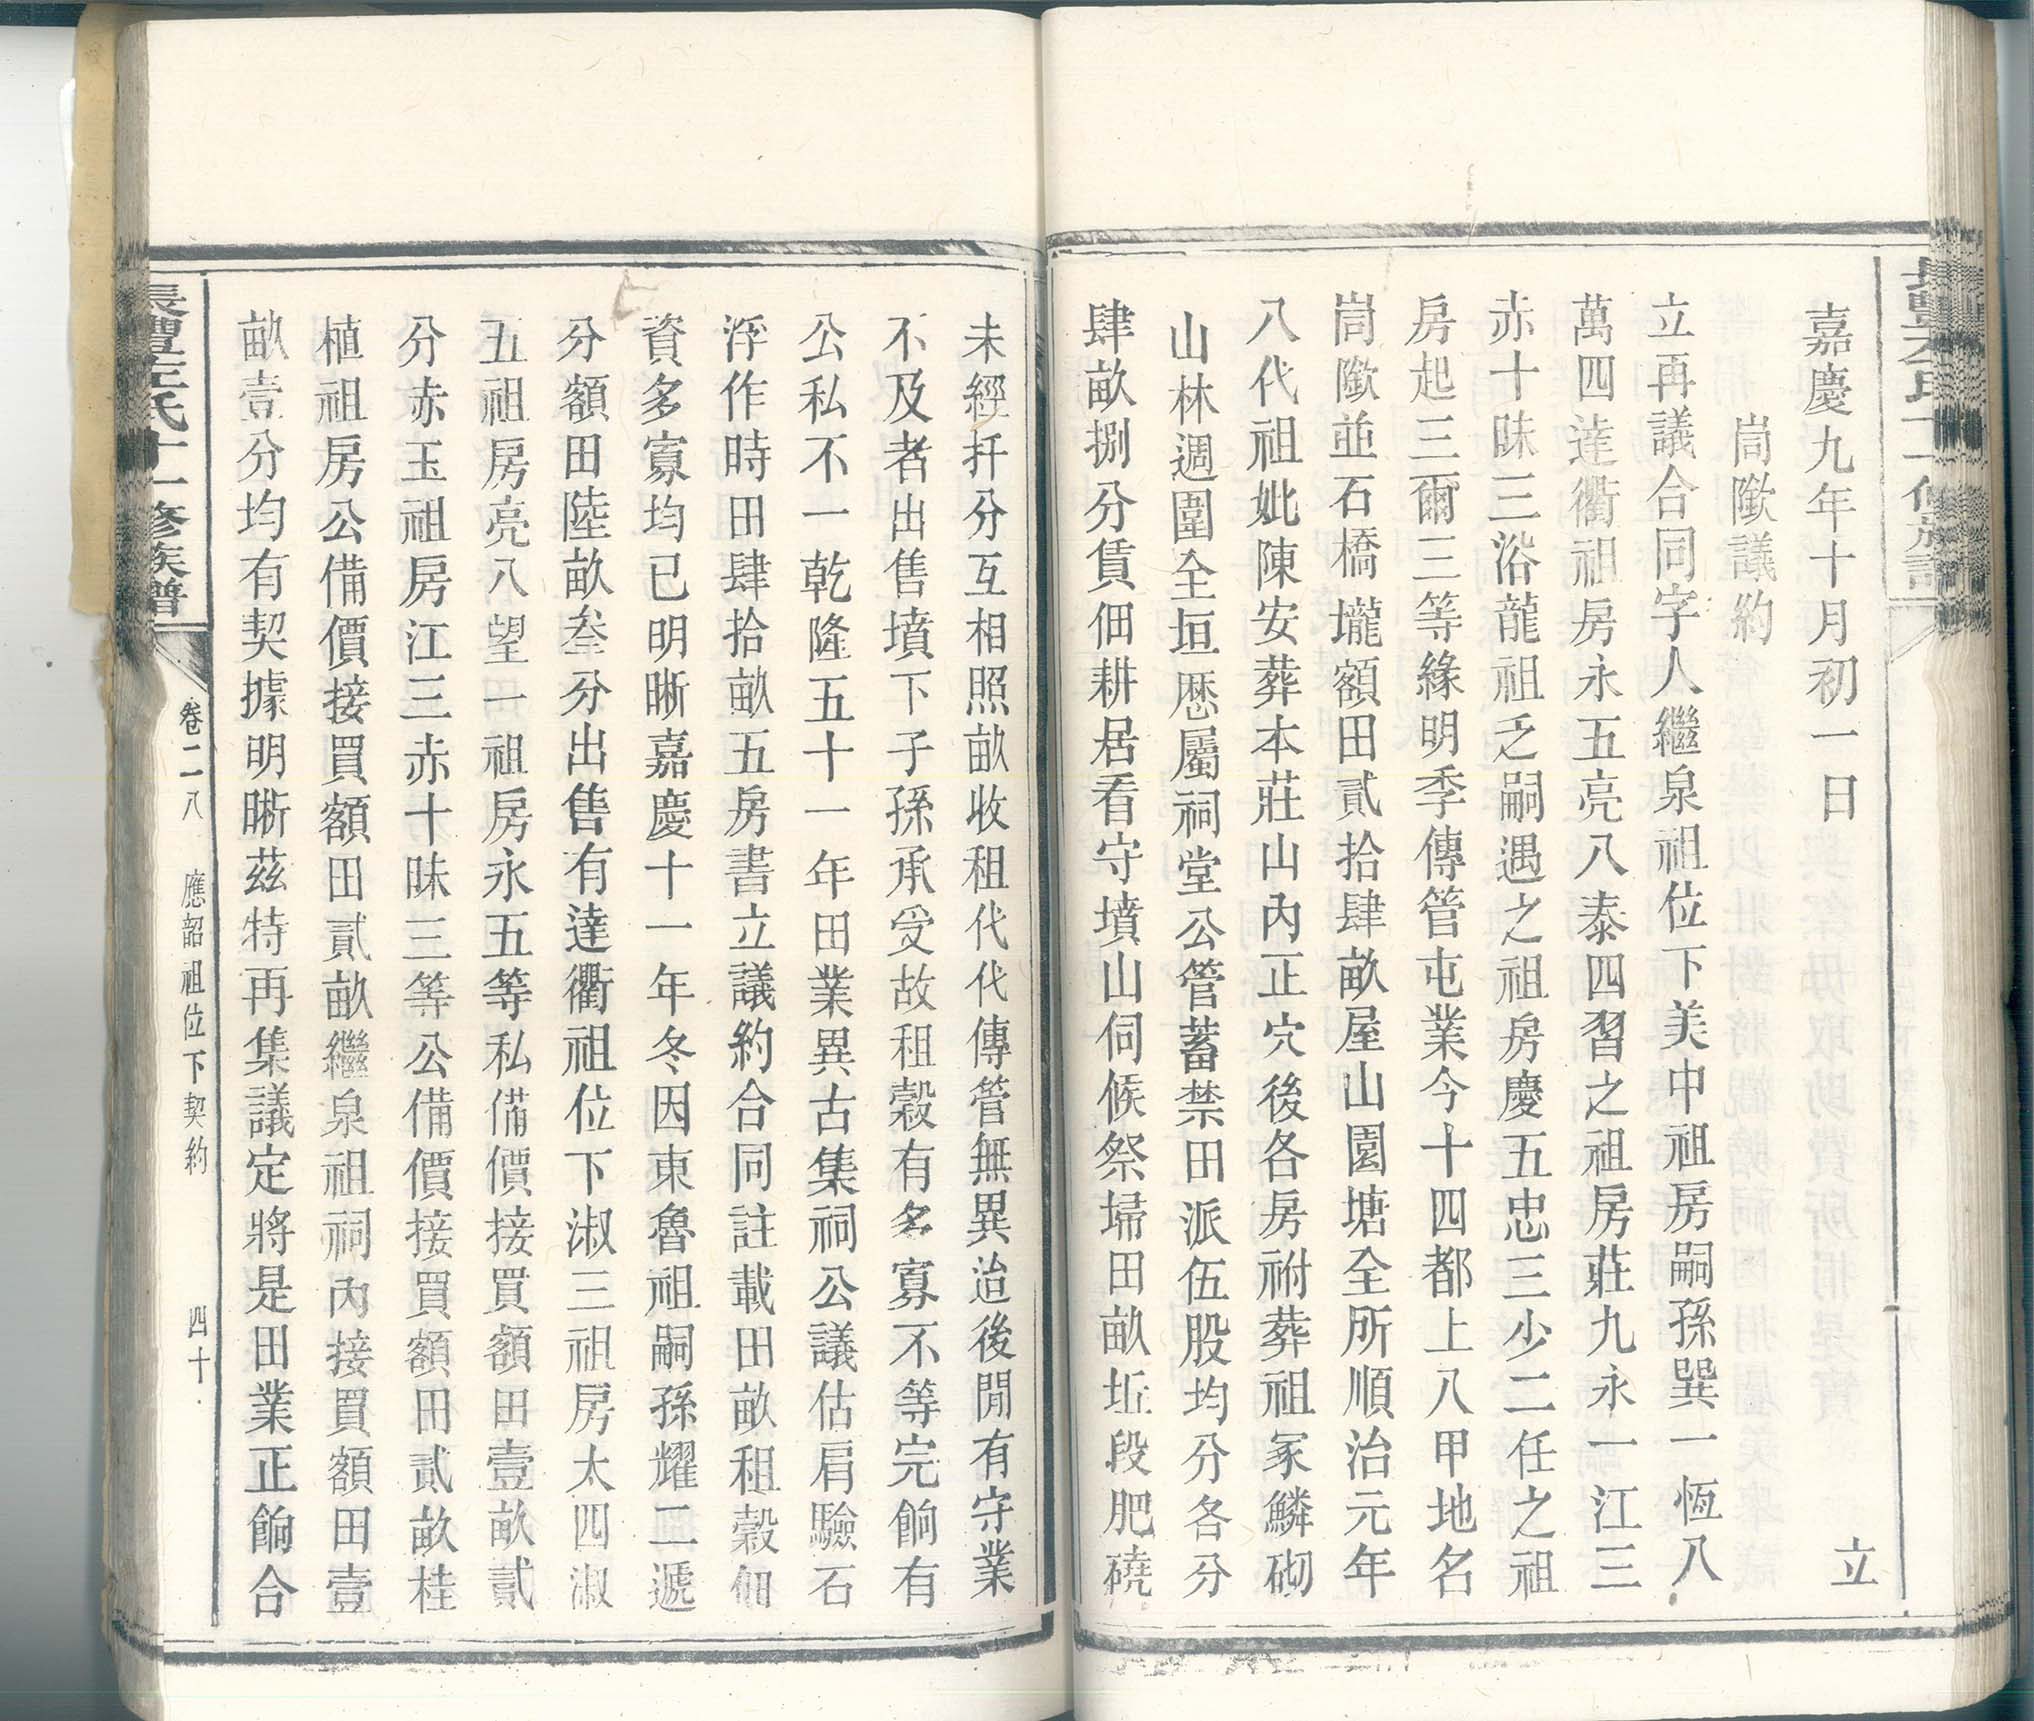 嘉慶九年十月初一日　立
峝隞議約
立再議合同字人繼泉祖位下美中祖房嗣孫巽一恆八
萬四達衢祖房永五亮八泰四習之祖房莊九永一江三
赤十昧三浴龍祖乏嗣遇之祖房慶五忠三少二任之祖
房起三爾三等緣明季傳管屯業今十四都上八甲地名
峝隞並石橋壠額田貳拾肆畝屋山園塘全所順治元年
八代祖妣陳安葬本莊山內正穴後各房祔葬祖冢鱗砌
山林週圍全垣歷屬祠堂公管蓄禁田派伍股均分各分
肆畝捌分賃佃耕居看守墳山伺候祭埽田畝坵段肥磽
未經扦分互相照畝收租代代傳管無異迨後間有守業
不及者出售墳下子孫承受故租穀有多寡不等完餉有
公私不一乾隆五十一年田業異古集祠公議估肩驗石
浮作時田肆拾畝五房書立議約合同註載田畝租穀佃
資多寡均已明晰嘉慶十一年冬因東魯祖嗣孫耀二遞
分額田陸畝叁分出售有達衢祖位下淑三祖房太四淑
五祖房亮八望一祖房永五等私備價接買額田壹畝貳
分赤玉祖房江三赤十昧三等公備價接買額田貳畝桂
植祖房公備價接買額田貳畝繼泉祖祠內接買額田壹
畝壹分均有契據明晰茲特再集議定將是田業正餉合
長澧左氏十一修族譜
卷二八　應韶祖位下契約　四十